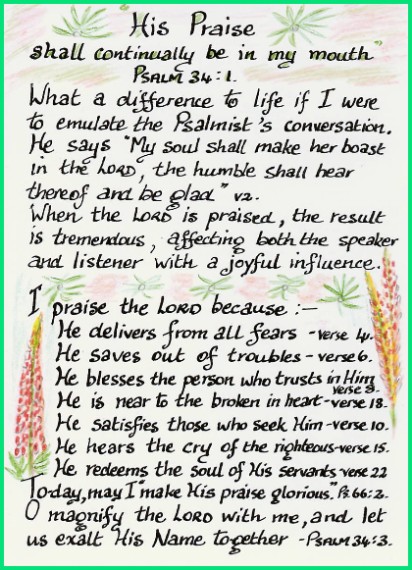 His Praise
shall continually be in my mouth"
PSALM 34:1.
What a difference to life if I were
to emulate the Psalmist's conversation.
He says "My soul shall make her boast
in the LORD, the humble shall hear
thereof and be glad" v2.
When the LORD is praised, the result
is tremendous, affecting both the speaker
and listener with a joyful influence.
I praise the LORD because :-
He delivers from all fears - verse 4.
He saves out of troubles - verse 6.
He blesses the person who trusts in Him
verse 8.
He is near to the broken in heart - verse 18.
He satisfies those who seek Him - verse 10.
He hears the cry of the righteous - verse 15.
He redeems the soul of His servants verse 22
Today, may I "make His praise glorious." Ps. 66:2.
O magnify the LORD with me, and let
us exalt His Name together - PSALM 34:3.